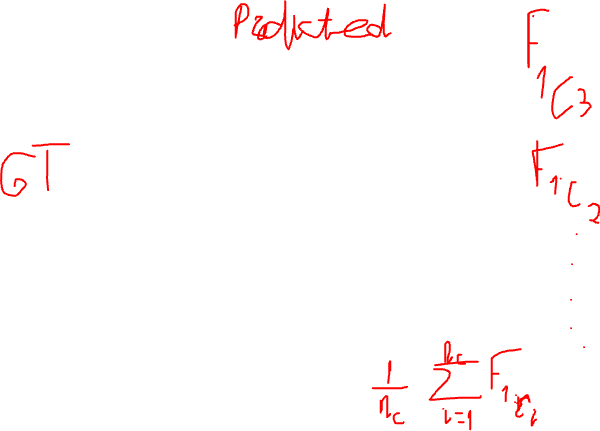 Predicted
F_1C_3
GT
F_1C_2
1/n_c ∑_{i=1}^{n_c} F_1C_i